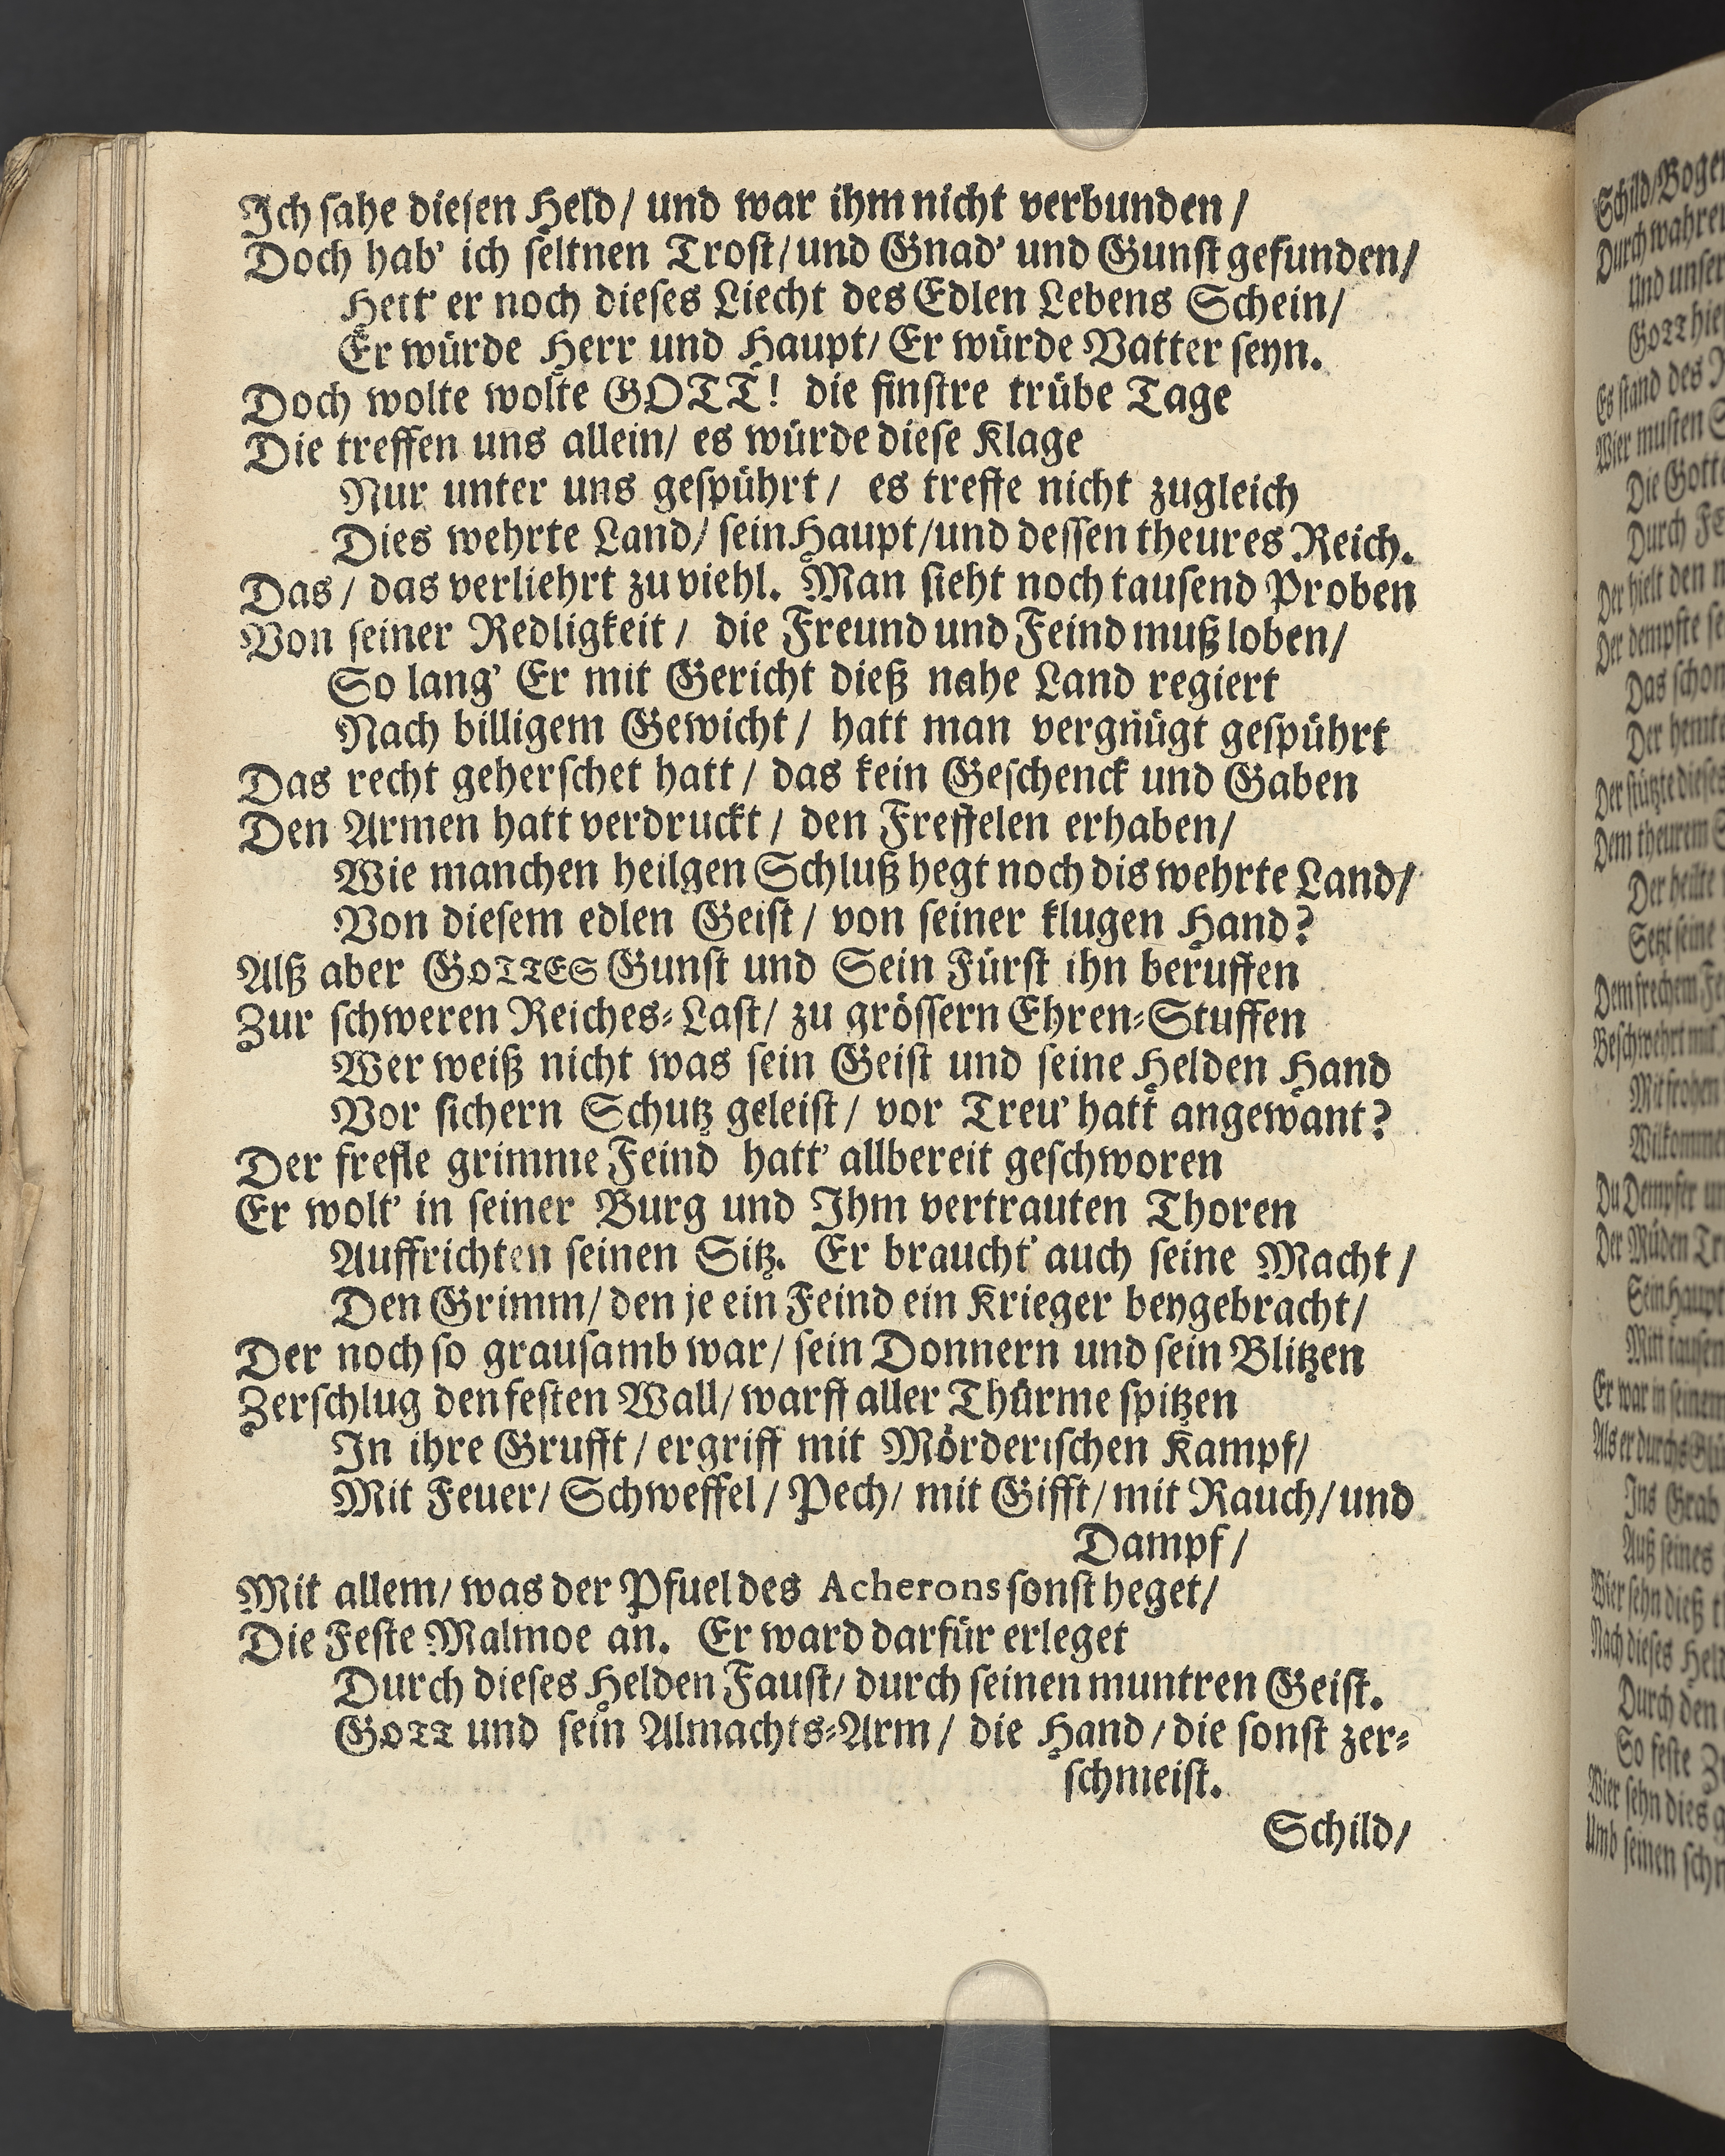 Ich sahe diesen Held / und war ihm nicht verbunden /
Doch hab' ich seltnen Trost / und Gnad' und Gunst gefunden /
Hett' er noch dieses Liecht des Edlen Lebens Schein /
Er würde Herr und Haupt / Er würde Vatter seyn.
Doch wolte wolte GOTT! die finstre trübe Tage
Die treffen uns allein / es würde diese Klage
Nur unter uns gespührt / es treffe nicht zugleich
Dies wehrte Land / sein Haupt / und dessen theures Reich.
Das / das verliehrt zu viehl. Man sieht noch tausend Proben
Von seiner Redligkeit / die Freund und Feind muß loben /
So lang' Er mit Gericht dieß nahe Land regiert
Nach billigem Gewicht / hatt man vergnügt gespührt
Das recht geherschet hatt / das kein Geschenck und Gaben
Den Armen hatt verdruckt / den Freffelen erhaben /
Wie manchen heilgen Schluß hegt noch dis wehrte Land /
Von diesem edlen Geist / von seiner klugen Hand?
Alß aber GOTTES Gunst und Sein Fürst ihn beruffen
Zur schweren Reiches-Last / zu grössern Ehren-Stuffen
Wer weiß nicht was sein Geist und seine Helden Hand
Vor sichern Schutz geleist / vor Treu' hatt angewant?
Der frefle grimme Feind hatt' allbereit geschworen
Er wolt' in seiner Burg und Ihm vertrauten Thoren
Auffrichten seinen Sitz. Er braucht' auch seine Macht /
Den Grimm / den je ein Feind ein Krieger beygebracht /
Der noch so grausamb war / sein Donnern und sein Blitzen
Zerschlug den festen Wall / warff aller Thürme spitzen
In ihre Grufft / ergriff mit Mörderischen Kampf /
Mit Feuer / Schweffel / Pech / mit Gifft / mit Rauch / und
Dampf /
Mit allem / was der Pfuel des Acherons sonst heget /
Die Feste Malmoe an. Er ward darfür erleget
Durch dieses Helden Faust / durch seinen muntren Geist.
GOTT und sein Almachts-Arm / die Hand / die sonst zer-
schmeist.
Schild /
Schild / Bogen
Durch wahren
Und unser
GOTT hie
Es stand des
Wier musten
Die Gotte
Durch
Der hielt den
Der dempfte
Das schon
Der
Der stützte dieses
Dem theurem
Der heilte
Setzt seine
Dem frechem
Beschwehrt mit
Mit frohen
Wilkomme
Du Dempfer
Der Müden
Sein Haupt
Mitt tausen
Er war in seinem
Als er durchs Glü
Ins Grab
Auß seines
Wier sehn dieß
Nach dieses Held
Durch den
So feste
Wier sehn dies
Umb seinen